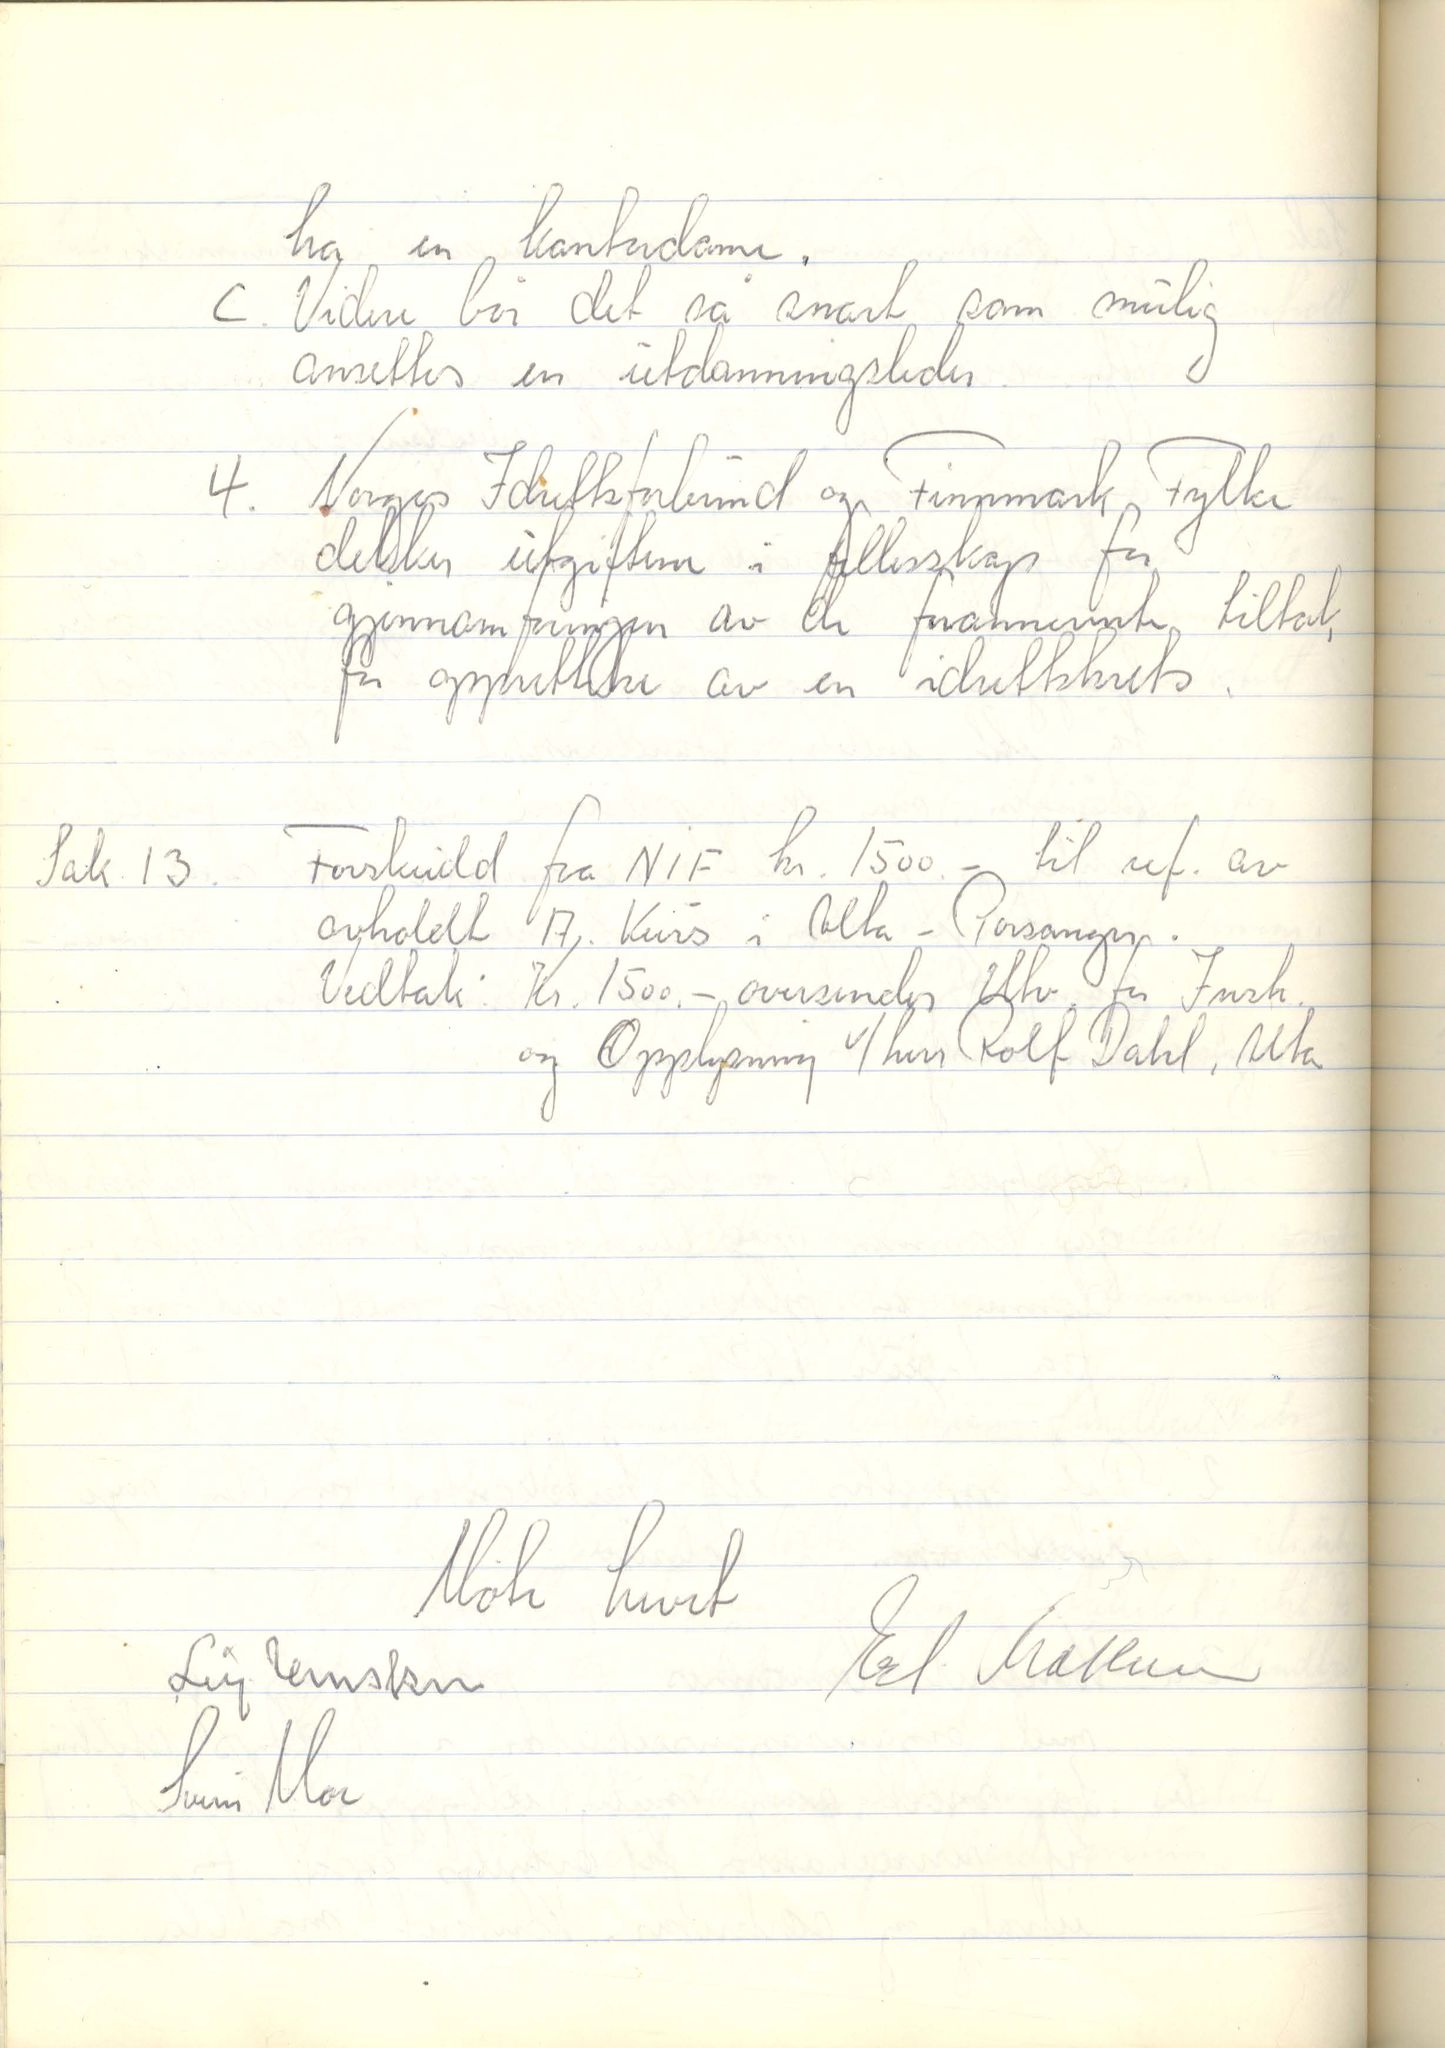 ha en kontordame.
C. Videre bør det så snart som mulig
ansettes en utdanningsleder
4. Norges Idrettsforbund og Finnmark Fylke
dekker utgiftene i fellesskap for
gjennomføringen av de forannevnte tiltak,
for opprettelse av en idrettskrets.
Sak 13. Forskudd fra NIF kr. 1500.- til ref. av
avholdt kurs i Alta - Porsanger.
Vedtak: Kr. 1500.- oversendes Utv. for Instr.
og Opplysning v/herr Rolf Dahl, Alta
Møte hevet
Svein Moe